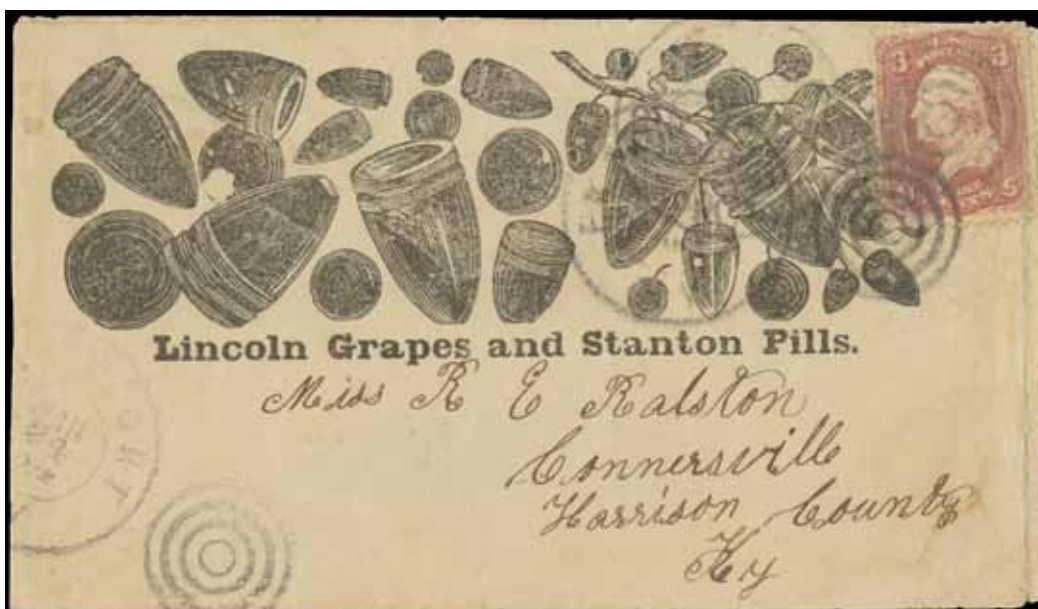 3 3
Lincoln Grapes and Stanton Pills.
Miss R E Ralston
Connersville
Harrison County
Ky